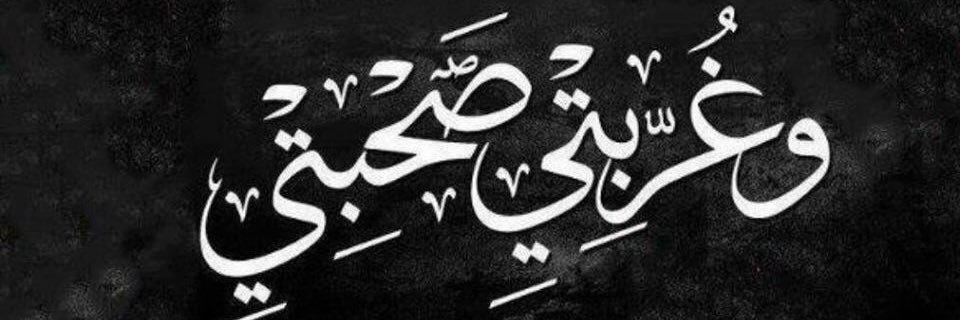 وغربتي صحبتي